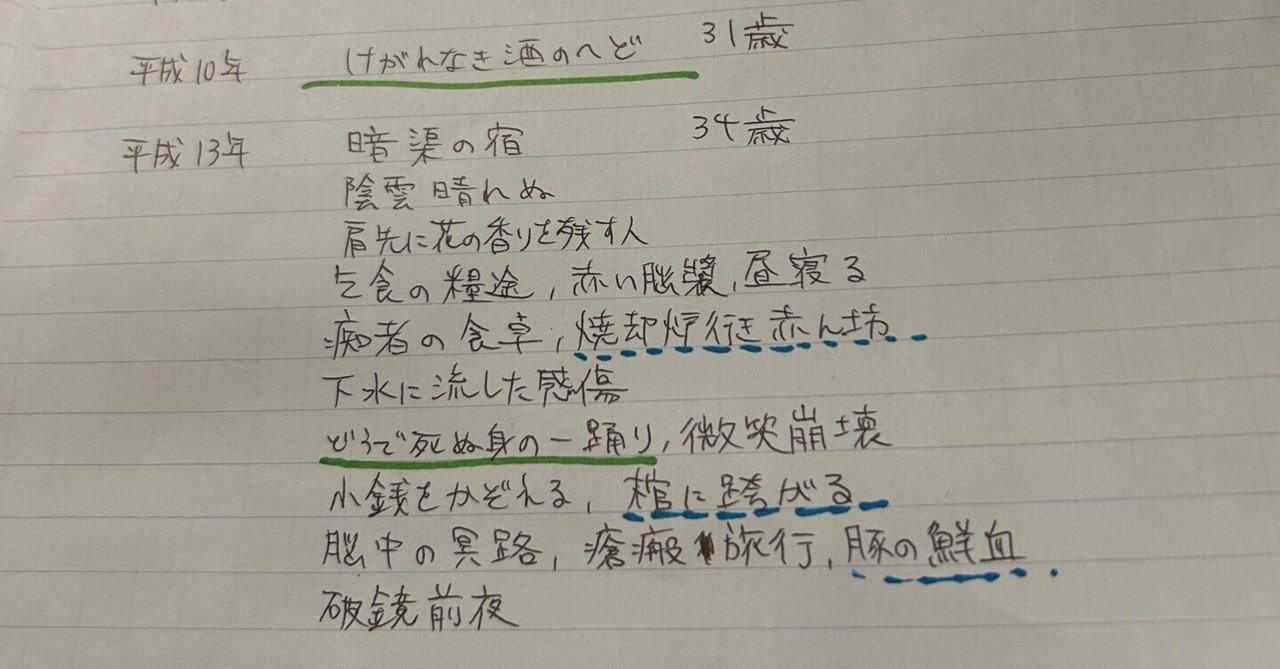 平成10年 けがれなき酒のへど 31歳
平成13年 暗渠の宿 34歳
陰雲晴れぬ
肩先に花の香りを残す人
乞食の糧途,赤い脳漿,昼寝る
痴者の食卓,焼却炉行き赤ん坊
下水に流した感傷
どうで死ぬ身の一踊り,微笑崩壊
小銭をかぞえる,棺に跨がる
脳中の冥路,瘡瘢旅行,豚の鮮血
破鏡前夜